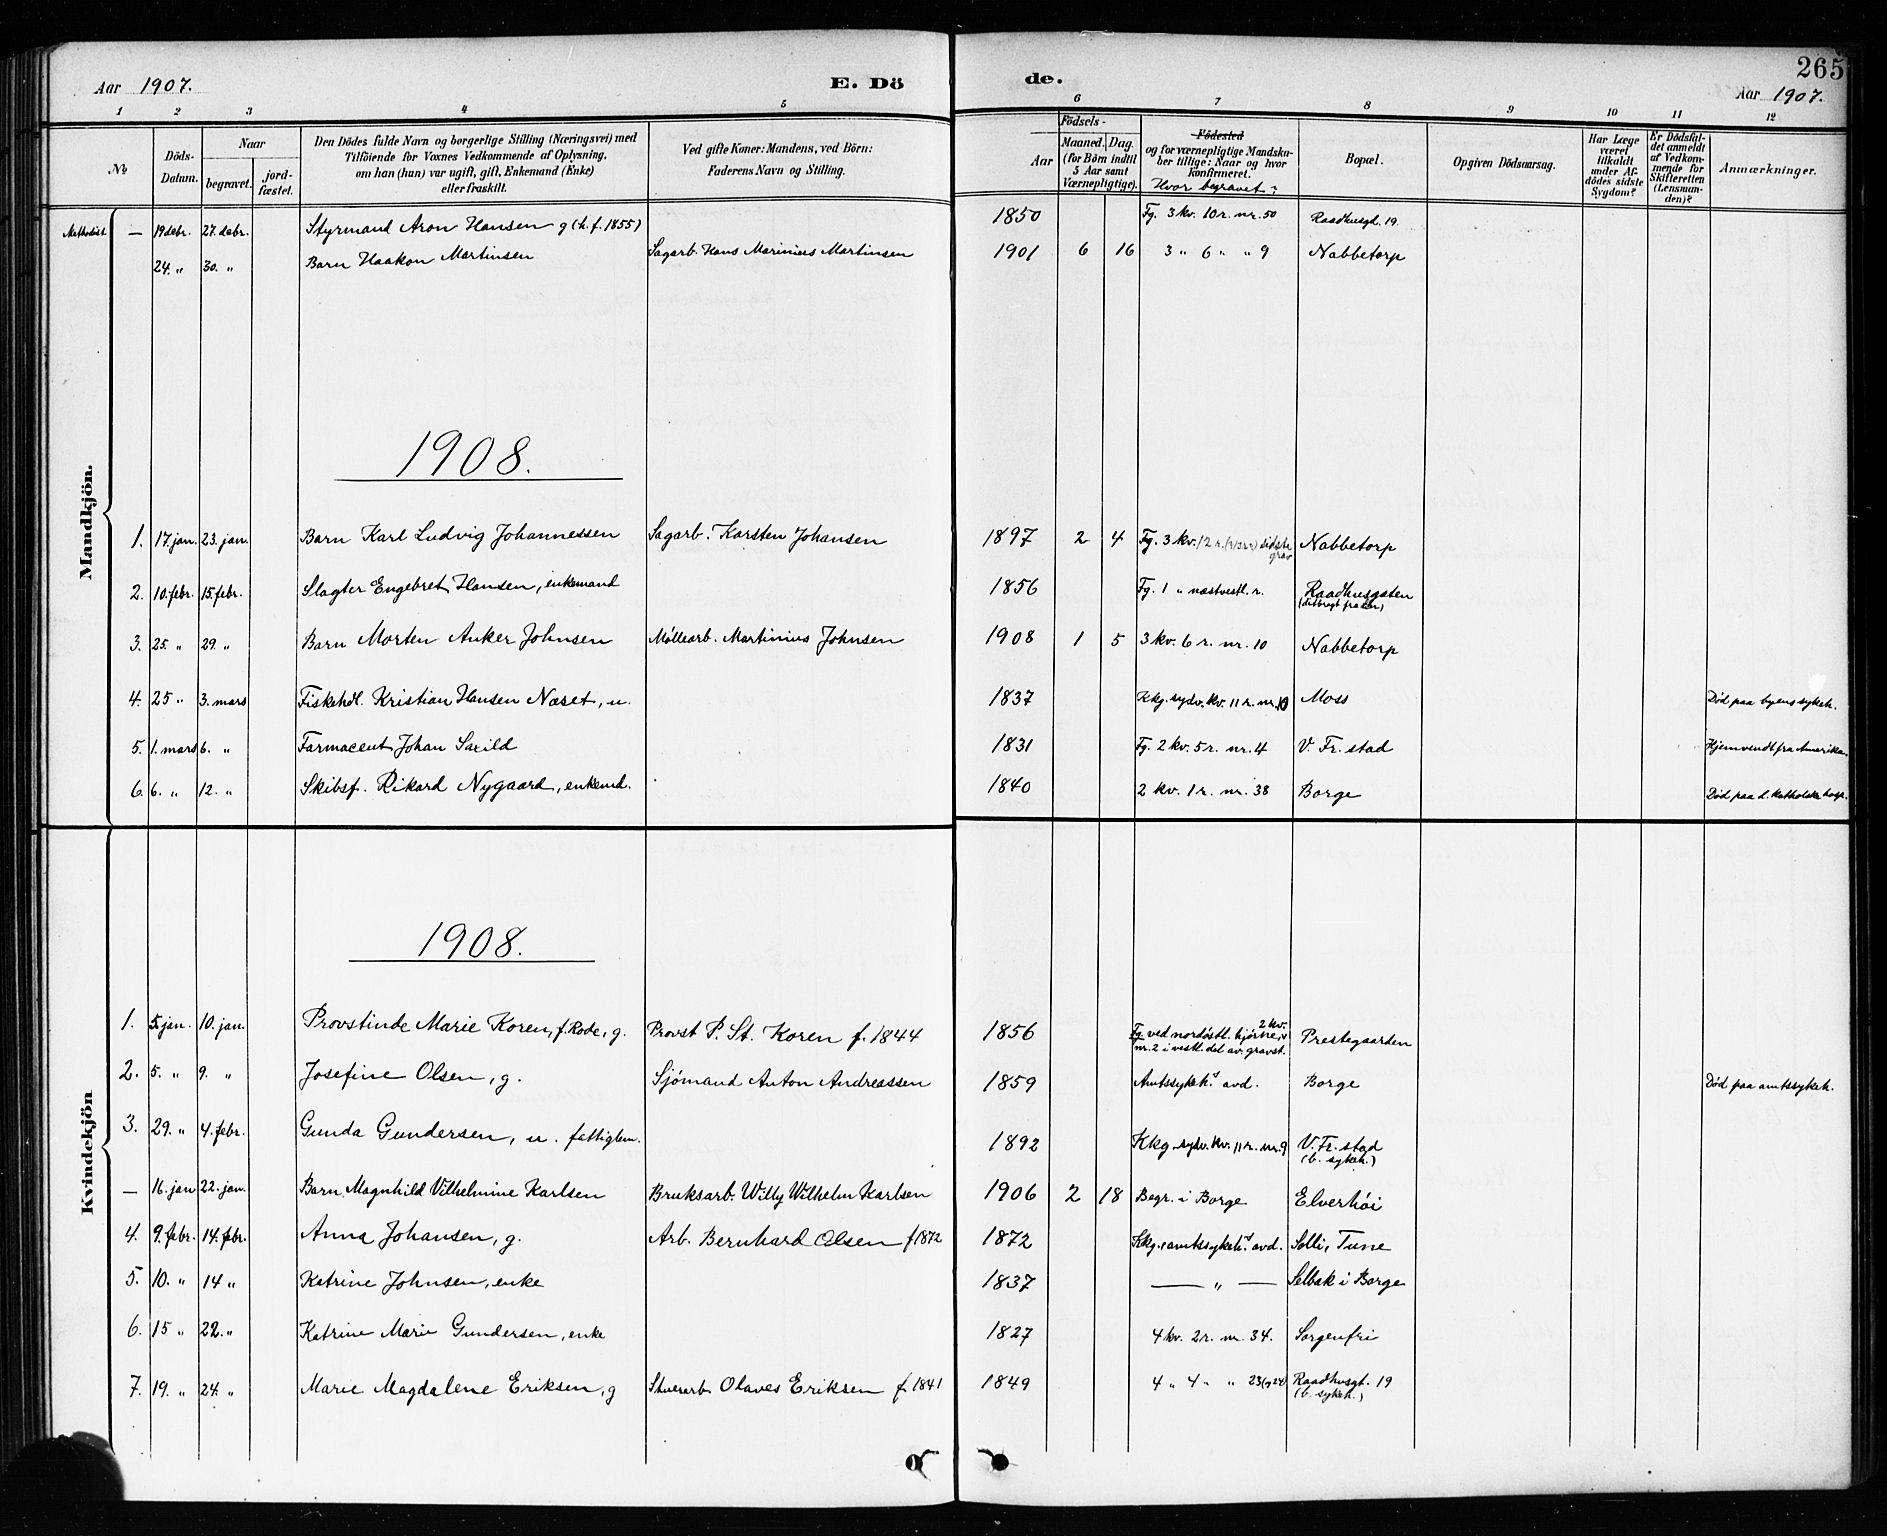 Aar 1907. E. Dö de. 265
Aar 1907.
1 2 3 4 5 6 7 8 9 10 11 12
No
Döds-Datum.
Naar
begravet.
jord-fæstet.
Den Dödes fulde Navn og borgerlige Stilling (Næringsvei) med
Tilföiende for Voxnes Vedkommende af Oplysning,
om han (hun) var ugift, gift, Enkemand (Enke)
eller fraskilt.
Ved gifte Koner: Mandens, ved Börn:
Faderens Navn og Stilling.
Födsels-
Aar
Maaned. Dag.
(for Börn indtil
5 Aar samt
Værnepligtige).
Födested
og for værnepligtige Mandska-
ber tillige: Naar og hvor
konfirmeret.
Hvor begravet?
Bopæl.
Opgiven Dödsaarsag.
Har Læge
været
tilkaldt
under Af-
dödes sidste
Sygdom?
Er Dödsfal-
det anmeldt
af Vedkom-
mende for
Skifteretten
(Lensman-
den)?
Anmærkninger.
Mandkjön.
Methodist — 19 debr. 27. debr. Styrmand Aron Hansen g (h. f. 1855) 1850 Fg. 3 kv. 10 r. nr. 50 Raadhusgt. 19
24. " 30. " Barn Haakon Martinsen Sagarb. Hans Marinius Martinsen 1901 6 16 3 " 6 " " 9 Nabbetorp
1908.
1. 17. jan. 23. jan. Barn Karl Ludvig Johannessen Sagarb. Karsten Johansen 1897 2 4 Fg. 3 kv. 12 r. sidste grav Nabbetorp
2. 10. febr. 15. febr. Slagter Engebret Hansen, enkemand 1856 Fg. 1 " næstvestl. r. Raadhusgaten
3. 25. " 29. " Barn Morten Anker Johnsen Møllearb. Martinius Johnsen 1908 1 5 3 kv. 6 r. nr. 10 Nabbetorp
4. 25 " 3. mars Fiskehdl. Kristian Hansen Næset, u. 1837 Kkg. sydv. kv. 11 r. nr. 10 Moss Död paa byens sykeh.
5. 1. mars 6. " Farmaceut Johan Saxild 1831 Fg. 2 kv. 5 r. nr. 4 V. Fr. stad Hjemvendt fra Amerika.
6. 6. " 12. " Skibsf. Rikard Nygaard, enkemd. 1840 2 kv. 1 r. nr. 38 Borge Död paa d. katholske hosp.
Kvindekjön
1908.
1. 5. jan. 10. jan. Provstinde Marie Koren, f. Rode, g. Provst P. St. Koren f. 1844 1856 Fg. ved nordöstl. hjörne, 2 kv. nr. 2 i vestl. del av gravst. Prestegaarden
2. 5. " 9. " Josefine Olsen, g. Sjömand Anton Andreassen 1859 Amtssykeh.s avd. Borge Död paa amtssykeh.
3. 29. " 4. febr. Gunda Gundersen, u. fattiglem. 1892 Kkg. sydv. kv. 11 r. nr. 9 V. Fr. stad
(b. sykeh.)
— 16. jan 22. jan. Barn Magnhild Vilhelmine Karlsen Bruksarb. Willy Wilhelm Karlsen 1906 2 18 Begr. i Borge Elverhöi
4. 9. febr. 14. febr. Anna Johansen, g. Arb. Bernhard Olsen f 1872 1872 Kkg., amtssykeh.s avd. Solli, Tune
5. 10. " 14 " Katrine Johnsen, enke 1837 — " — Selbak i Borge
6. 15 " 22. " Katrine Marie Gundersen, enke 1827 4 kv. 2 r. nr. 34. Sorgenfri
7. 19. " 24. " Marie Magdalene Eriksen, g Olaves Eriksen f. 1841 1849 4 " 4 " " 23 (g 24) Raadhusgt. 19
(b. sykeh.)